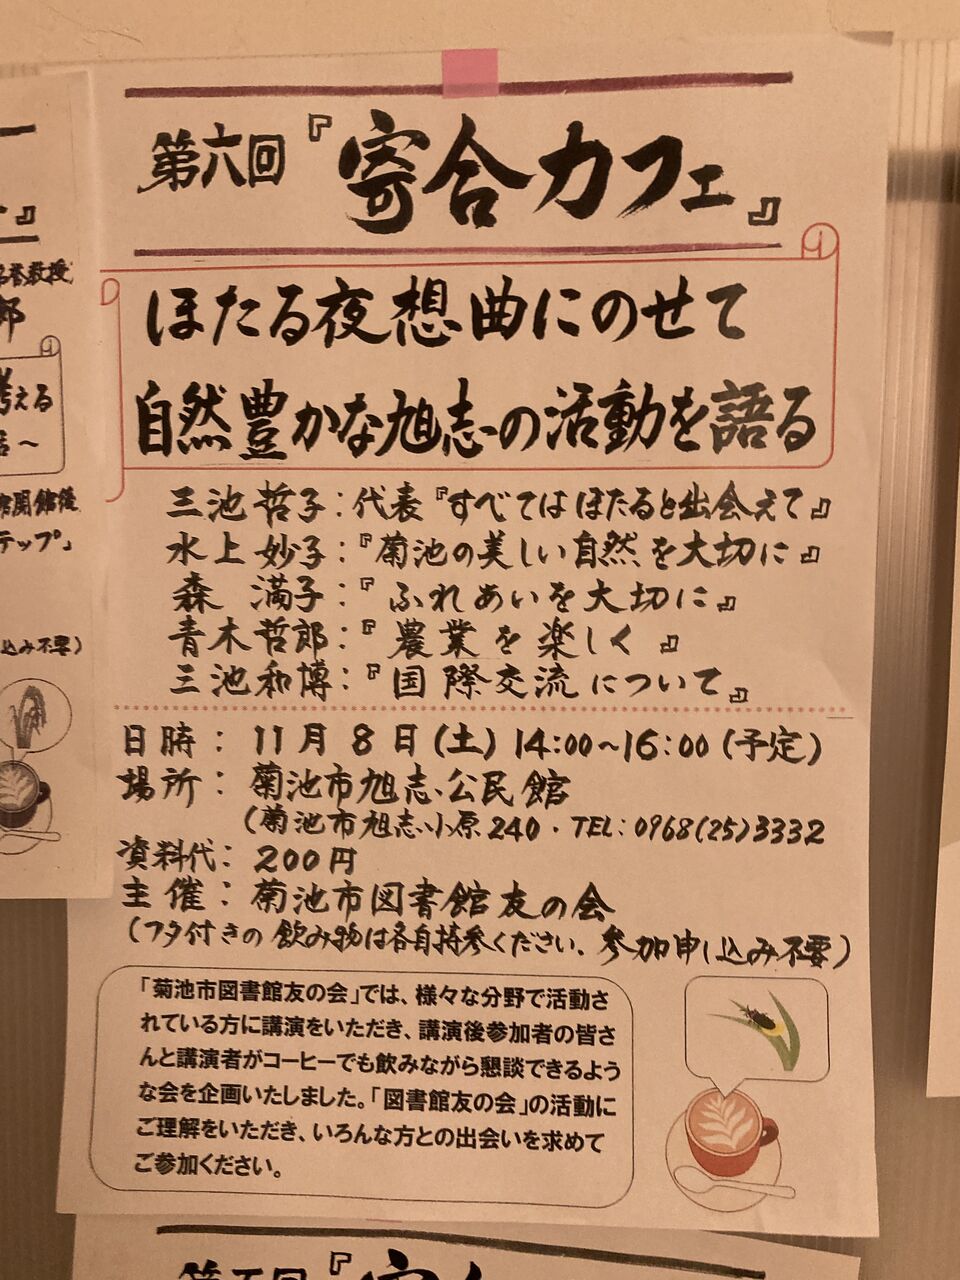 第六回『寄合カフェ』
ほたる夜想曲にのせて
自然豊かな旭志の活動を語る
三池哲子:代表『すべてはほたると出会えて』
水上妙子:『菊池の美しい自然を大切に』
森 満子:『ふれあいを大切に』
青木哲郎:『農業を楽しく』
三池和博:『国際交流について』
日時:11月8日(土)14:00~16:00(予定)
場所:菊池市旭志公民館
(菊池市旭志小原240・TEL:0968(25)3332
資料代:200円
主催:菊池市図書館友の会
(フタ付きの飲み物は各自持参ください、参加申し込み不要)
「菊池市図書館友の会」では、様々な分野で活動さ
れている方に講演をいただき、講演後参加者の皆さ
んと講演者がコーヒーでも飲みながら懇談できるよう
な会を企画いたしました。「図書館友の会」の活動に
ご理解をいただき、いろんな方との出会いを求めて
ご参加ください。
』
名誉教授
郎
考える
~
開館後
テップ」
込み不要)
第五回『寄合